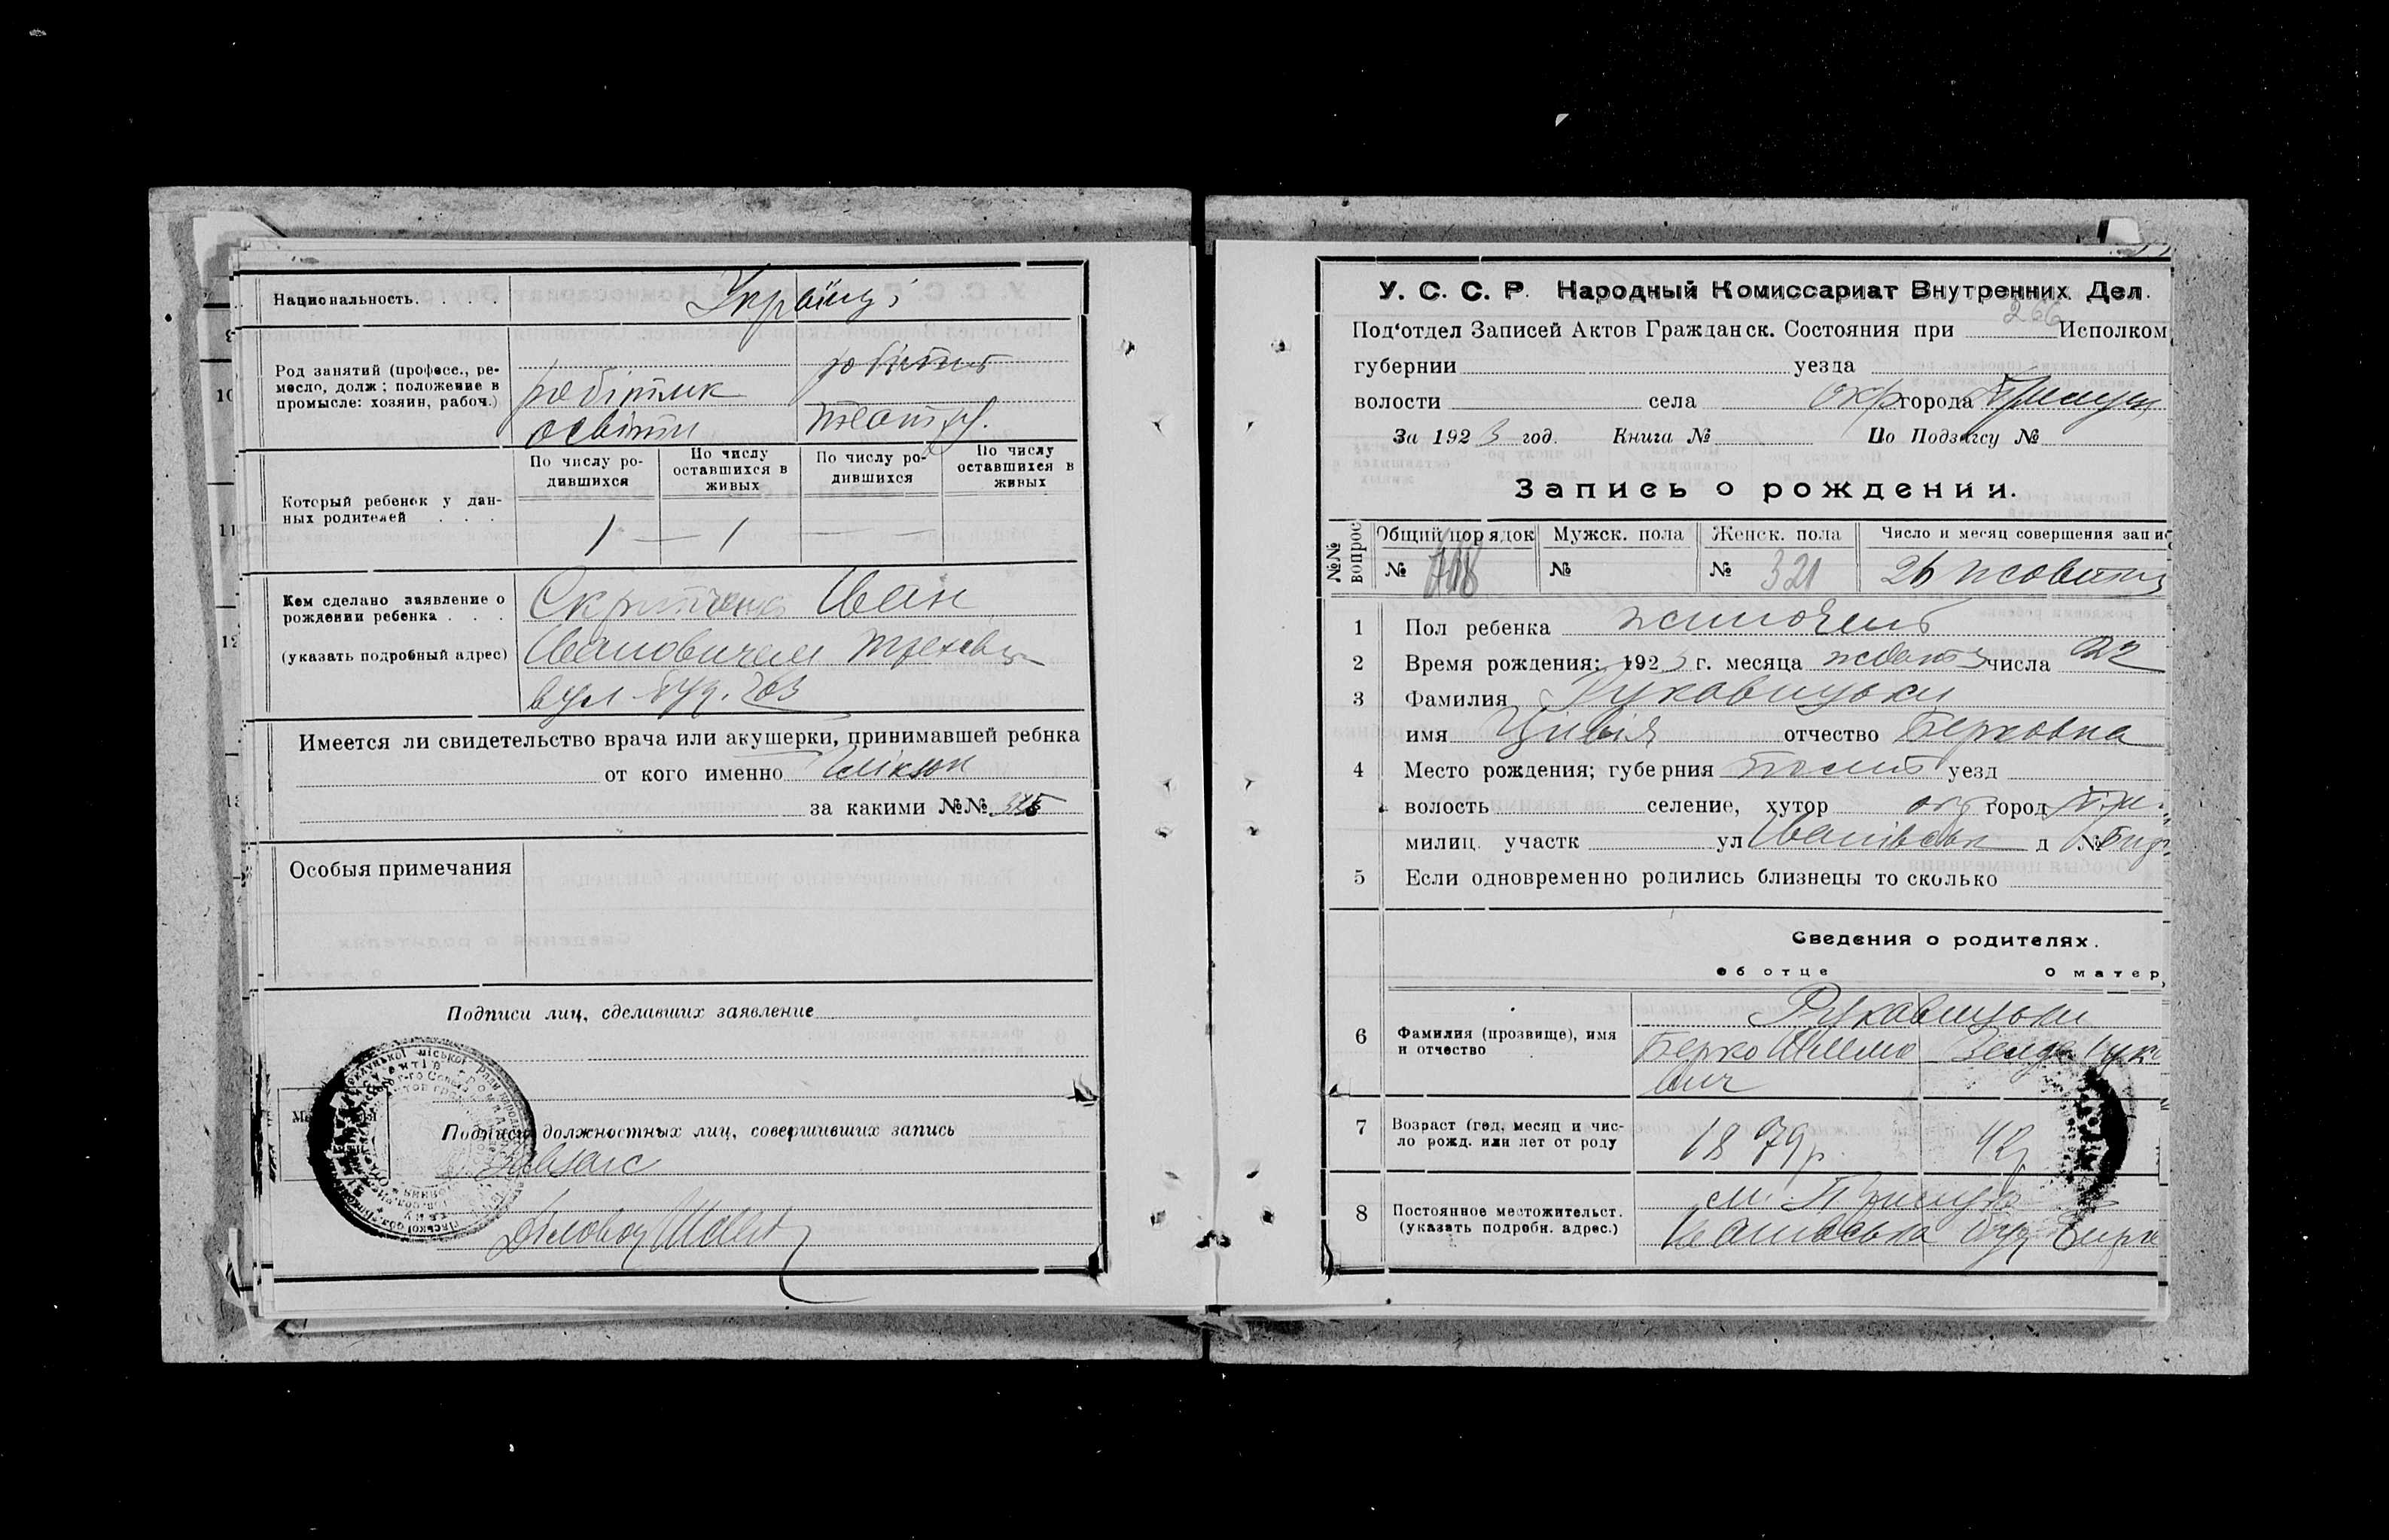 Национальность. . . . . Українці
Род занятий (професс., ре-
месло, долж; положение в
промысле: хозяин, рабоч.)
робітник
освіти
робітнт
театру.
Который ребенок у дан-
ных родителей . . .
По числу ро-
дившихся
По числу
оставшихся в
живых
По числу ро-
дившихся
По числу
оставшихся в
живых
1 — 1 — —
Кем сделано заявление о
рождении ребенка . . .
(указать подробный адрес)
Іван
Івановичем
вул буд. 203
Имеется ли свидетельство врача или акушерки, принимавшей ребнка
от кого именно
за какими №№
Особыя примечания
Подписи лиц, сделавших заявление
Подписи должностных лиц, совершивших запись
Завзагс
Діловод
У. С. С. Р. Народный Комиссариат Внутренних Дел.
266
Под‘отдел Записей Актов Гражданск. Состояния при Исполком
губернии уезда
волости села окр города Прилуки
За 1923 год. Книга № По Подзагсу №
Запись о рождении.
№№
вопрос
Общий порядок
Мужск. пола
Женск. пола
Число и месяц совершения запис
№ 768 № № 321 26 жовтня
1 Пол ребенка жиночень
2 Время рождения; 1923 г. месяца жовтня числа 22
3 Фамилия Рукавицьки
имя Цивія отчество Берковна
4 Место рождения; губерния Полт уезд
волость селение, хутор окр город При.
милиц. участк ул Іванівськ д №
5 Если одновременно родились близнецы то сколько
Сведения о родителях.
об отце О матер
6 Фамилия (прозвище), имя
и отчество
Рукавицьки
Берко Шлемо
вич
Зелда
7 Возраст (год, месяц и чис-
ло рожд. или лет от роду
1879 р. 42
8 Постоянное местожительст.
(указать подробн. адрес.)
м. Прилука
Іванівська буд